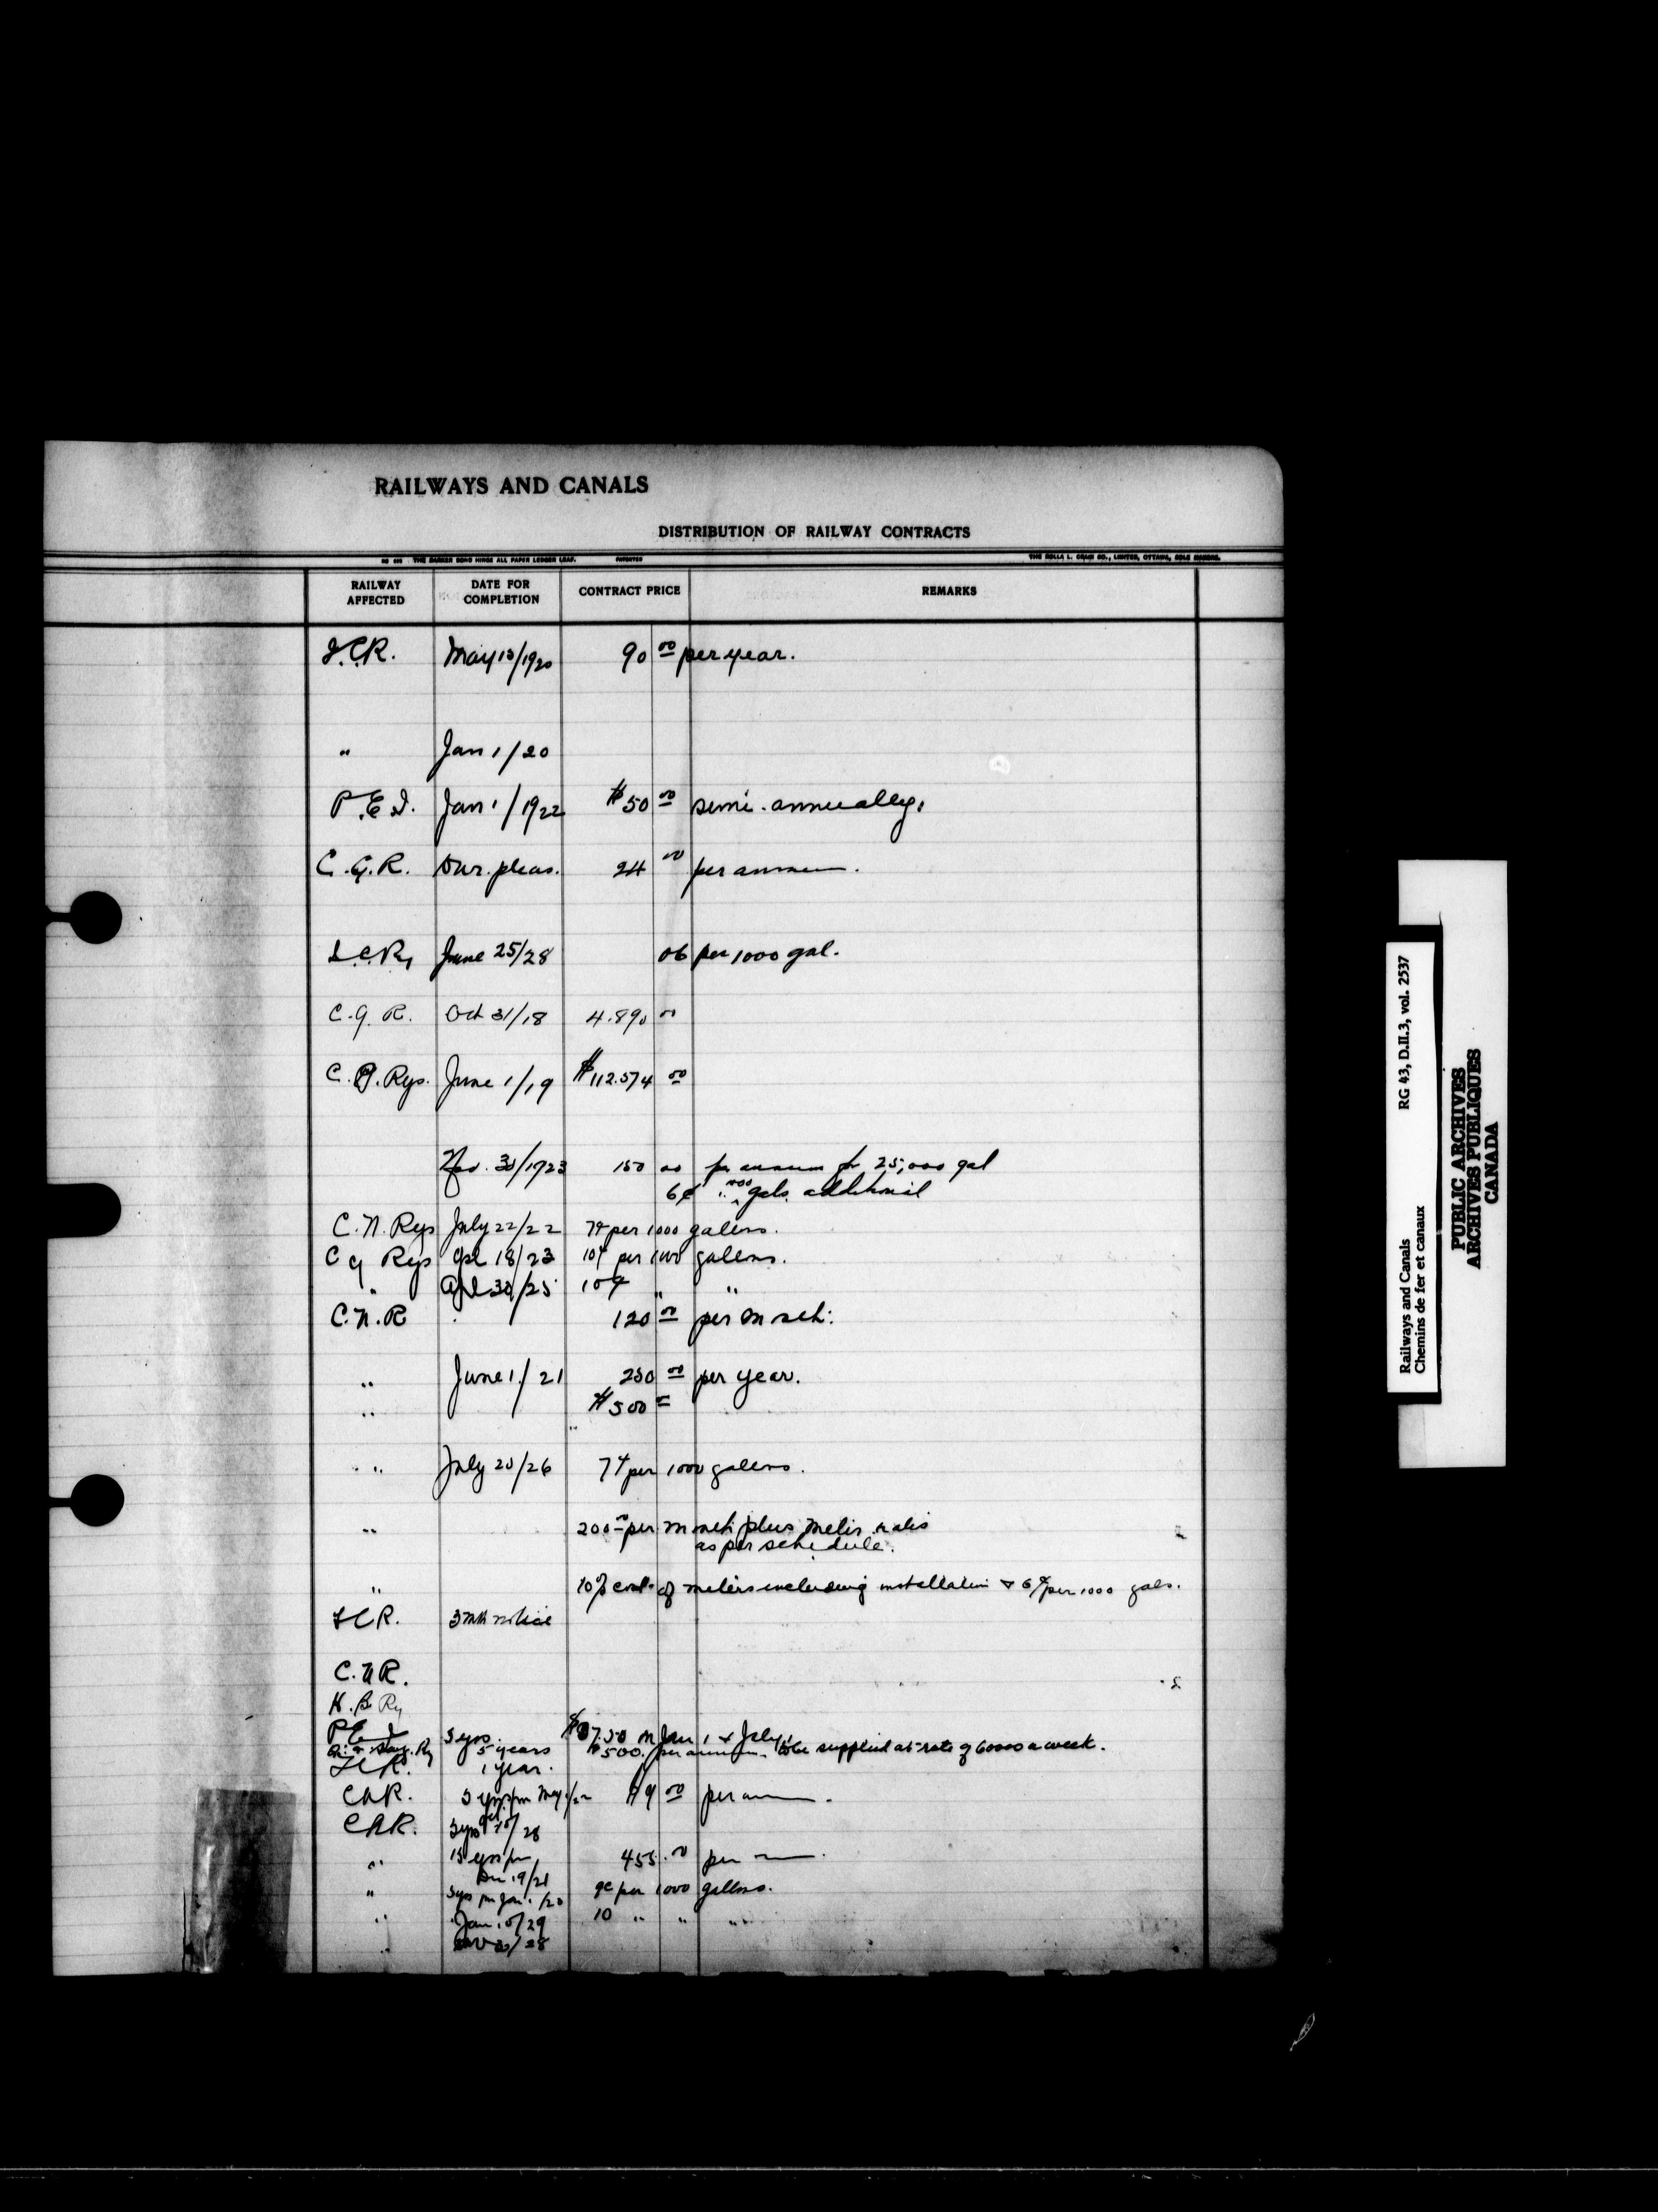 RAILWAYS AND CANALS
DISTRIBUTION OF RAILWAY CONTRACTS
THE BARKER BOND HINGE ALL PAPER LEDGER LEAF. PATENTED THE ROLLA L. CRAIN CO., LIMITED, OTTAWA, SOLE MAKERS.
RAILWAY AFFECTED DATE FOR COMPLETION CONTRACT PRICE REMARKS
I.C.R. May 13/1920 90 00 per year.
" Jan 1/20
P.E.I. Jan 1/1922 $50 00 semi-annually.
C.G.R. Dur. pleas. 24 00 per annum.
I.C.R. June 25/28 06 per 1000 gal.
C.G.R. Oct 31/18 4.890 00
C.G. Rys. June 1/19 $112.574 00
Nov. 30/1923 150 00 per annum for 25,000 gal
6¢ " 1000 gals. additional
C.N. Rys July 22/22 7¢ per 1000 gallons.
C G Rys 18/23 10¢ per 1000 gallons.
" Apl 30/25 10¢ " "
C.N.R 120 00 per month.
" June 1/21 250 00 per year.
" $500 00
" July 20/26 7¢ per 1000 gallons.
" 200 00 per month plus meter rates
as per schedule.
" 10% cost of meters including installation & 6¢ per 1000 gals.
I.C.R. 3 mth notice
C.N.R.
H.B. Ry
P.E.I. 5 yrs. 7.50 on Jan 1 & July 1
Ry 5 years $500. per annum. to be supplied at rate of 60000 a week.
I.C.R. 1 year.
C.N.R. yrs fm May /22 00 per annum.
C.N.R. /28
" 15 yrs fm 455.00 per annum.
Dec 19/21
" yrs fm Jan. 1/20 9c per 1000 gallons.
" Jan. /29 10 " " "
" /28
Railways and Canals RG 43, D.II.3, vol. 2537
Chemins de fer et canaux
PUBLIC ARCHIVES
ARCHIVES PUBLIQUES
CANADA